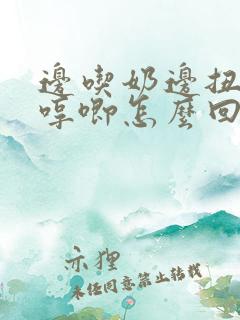 邊喫奶邊扭
哼唧怎麼回
示狸
未經同意禁止轉載